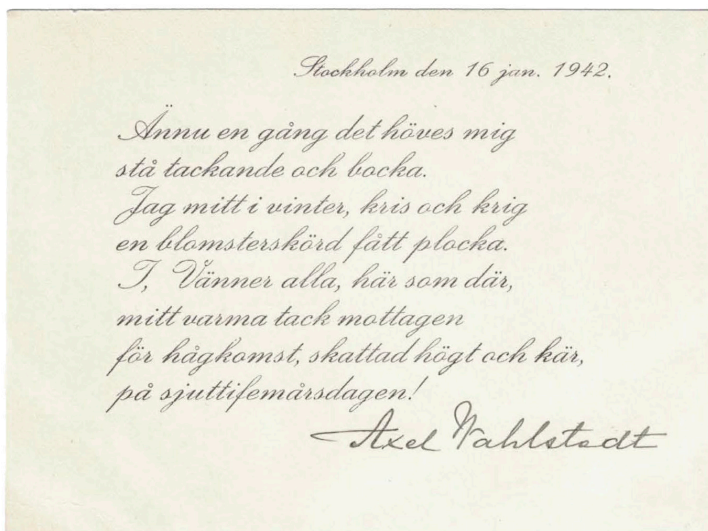 Stockholm den 16 jan. 1942.
Ännu en gång det höves mig
stå tackande och bocka.
Jag mitt i vinter, kris och krig
en blomsterskörd fått plocka.
I, Vänner alla, här som där,
mitt varma tack mottagen
för hågkomst, skattad högt och kär,
på sjuttifemårsdagen!
Axel Wahlstedt